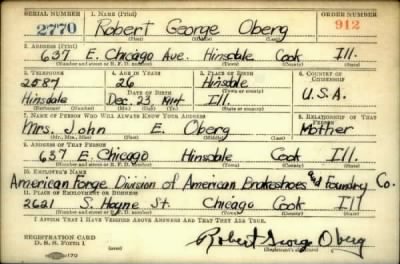 SERIAL NUMBER 1. NAME (Print) ORDER NUMBER
2770 Robert George Oberg 912
(First) (Middle) (Last)
2. ADDRESS (Print)
637 E. Chicago Ave. Hinsdale Cook Ill.
(Number and street or R. F. D. number) (Town) (County) (State)
3. TELEPHONE 4. AGE IN YEARS 5. PLACE OF BIRTH 6. COUNTRY OF CITIZENSHIP
2587 26 Hinsdale
DATE OF BIRTH
Hinsdale Dec. 23 1914 Ill. U.S.A.
(Exchange) (Number) (Mo.) (Day) (Yr.) (State or country)
7. NAME OF PERSON WHO WILL ALWAYS KNOW YOUR ADDRESS 8. RELATIONSHIP OF THAT PERSON
Mrs. John E. Oberg Mother
(Mr., Mrs., Miss) (First) (Middle) (Last)
9. ADDRESS OF THAT PERSON
637 E. Chicago Hinsdale Cook Ill.
(Number and street or R. F. D. number) (Town) (County) (State)
10. EMPLOYER'S NAME
American Forge Division of American Brakeshoes and Foundry Co.
11. PLACE OF EMPLOYMENT OR BUSINESS
2621 S. Hoyne St. Chicago Cook Ill
(Number and street or R. F. D. number) (Town) (County) (State)
I AFFIRM THAT I HAVE VERIFIED ABOVE ANSWERS AND THAT THEY ARE TRUE.
REGISTRATION CARD
D. S. S. Form 1 Robert George Oberg
(Registrant's signature)